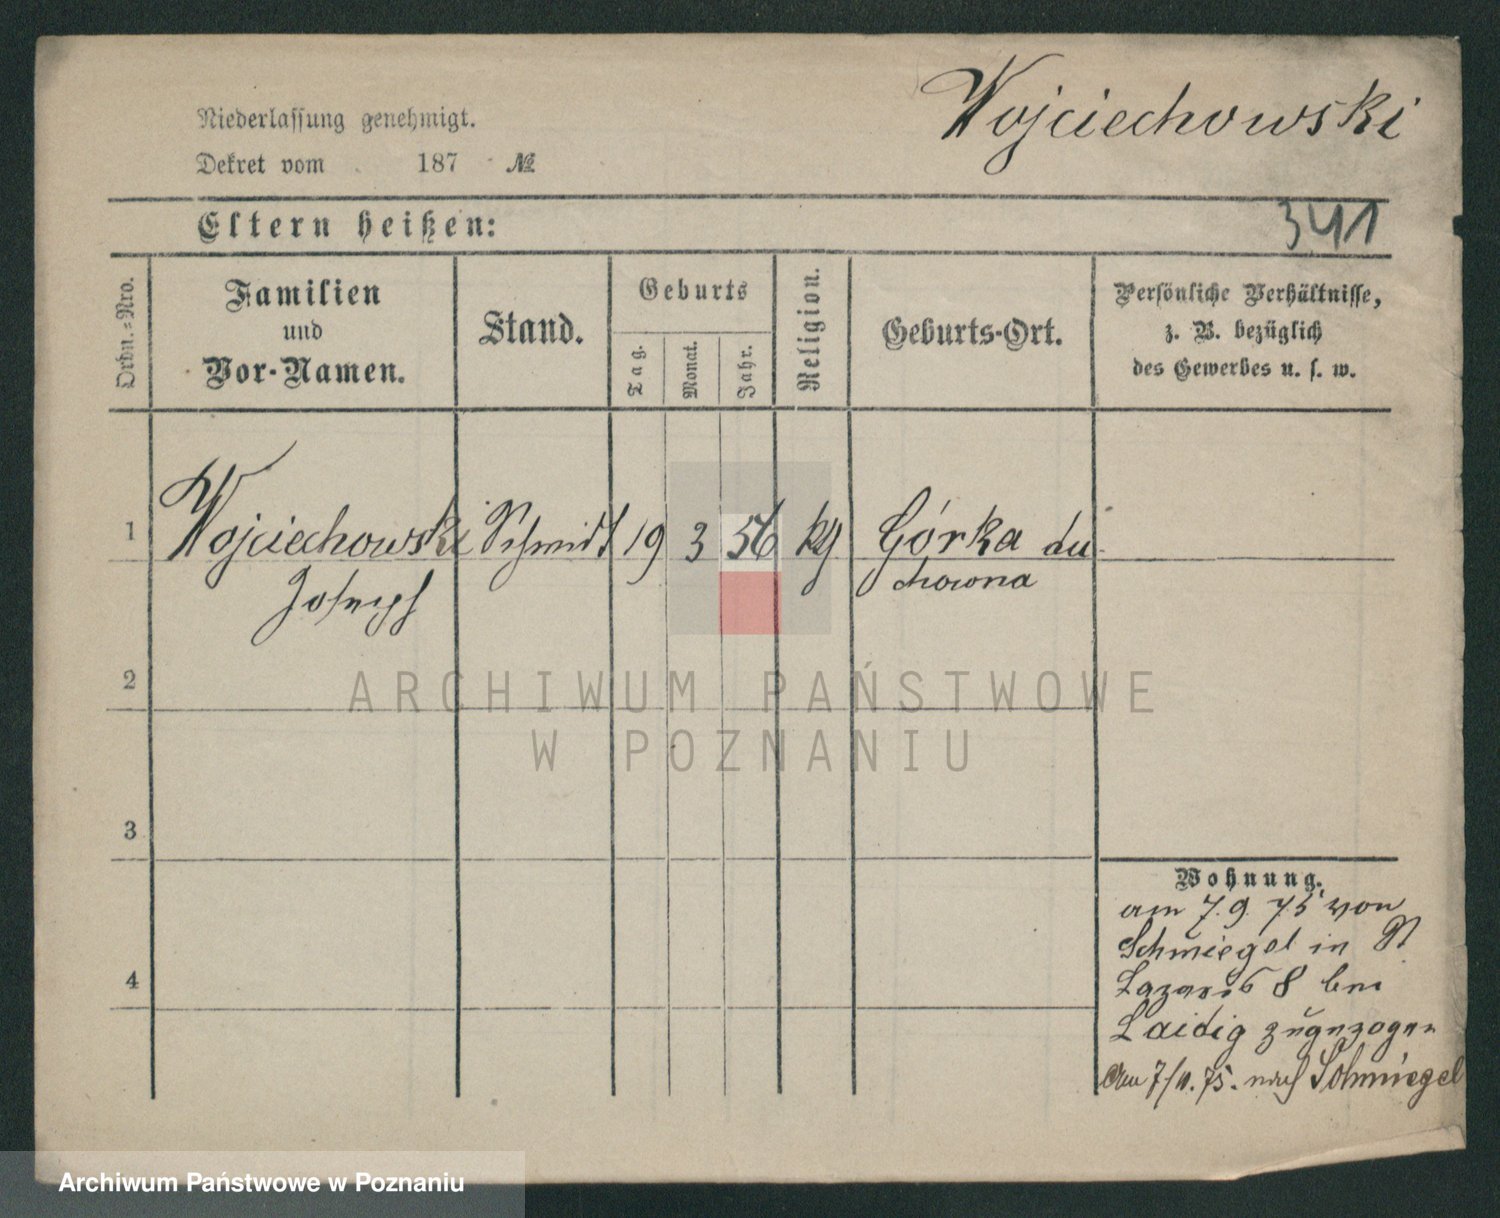 Wojciechowski
Niederlassung genehmigt.
Dekret vom 187 №
341
Eltern heißen:
Ordn.=Nro.
Familien
und
Vor-Namen.
Stand.
Geburts
Tag.
Monat.
Jahr.
Religion.
Geburts-Ort.
Persönliche Verhältnisse,
z. B. bezüglich
des Gewerbes u. s. w.
1 Wojciechowski Schmidt 19 3 56 Górka du
chowna
Joseph
2
ARCHIWUM PAŃSTWOWE
W POZNANIU
3
Wohnung.
am 7. 9. 75 von
Schmiegel in St
Lazarus 8 bei
Laidig zugezogen
Am 7/11. 75. nach Schmiegel
4
Archiwum Państwowe w Poznaniu